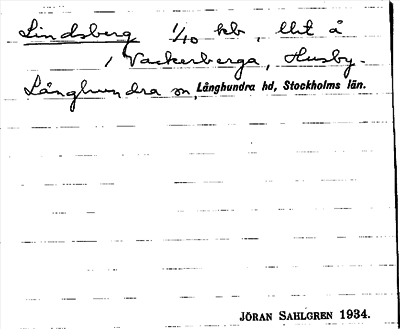 Lindsberg 1/40 kb, lht å
1 Vackerberga, Husby-
Långhundra sn, Långhundra hd, Stockholms län.
JÖRAN SAHLGREN 1934.